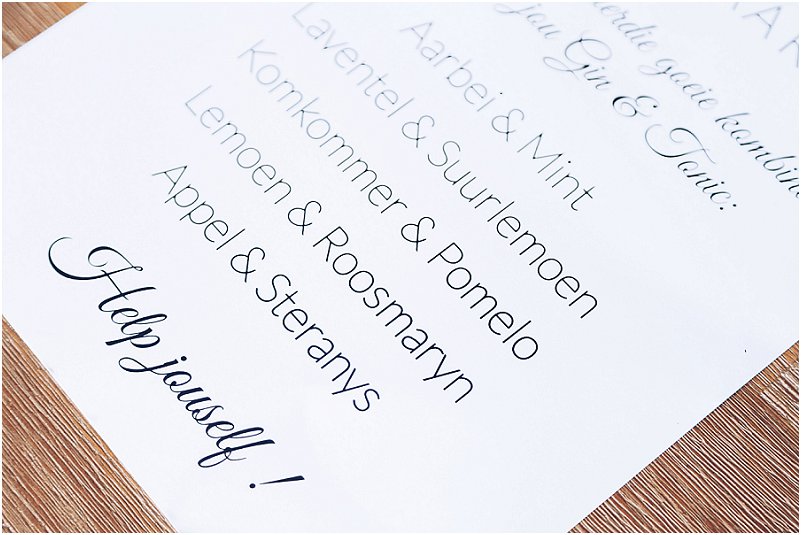 goeie kombin
jou Gin & Tonic:
Aarbei & Mint
Laventel & Suurlemoen
Komkommer & Pomelo
Lemoen & Roosmaryn
Appel & Steranys
Help jouself !